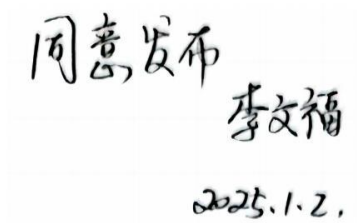 同意发布
李文福
2025.1.2.